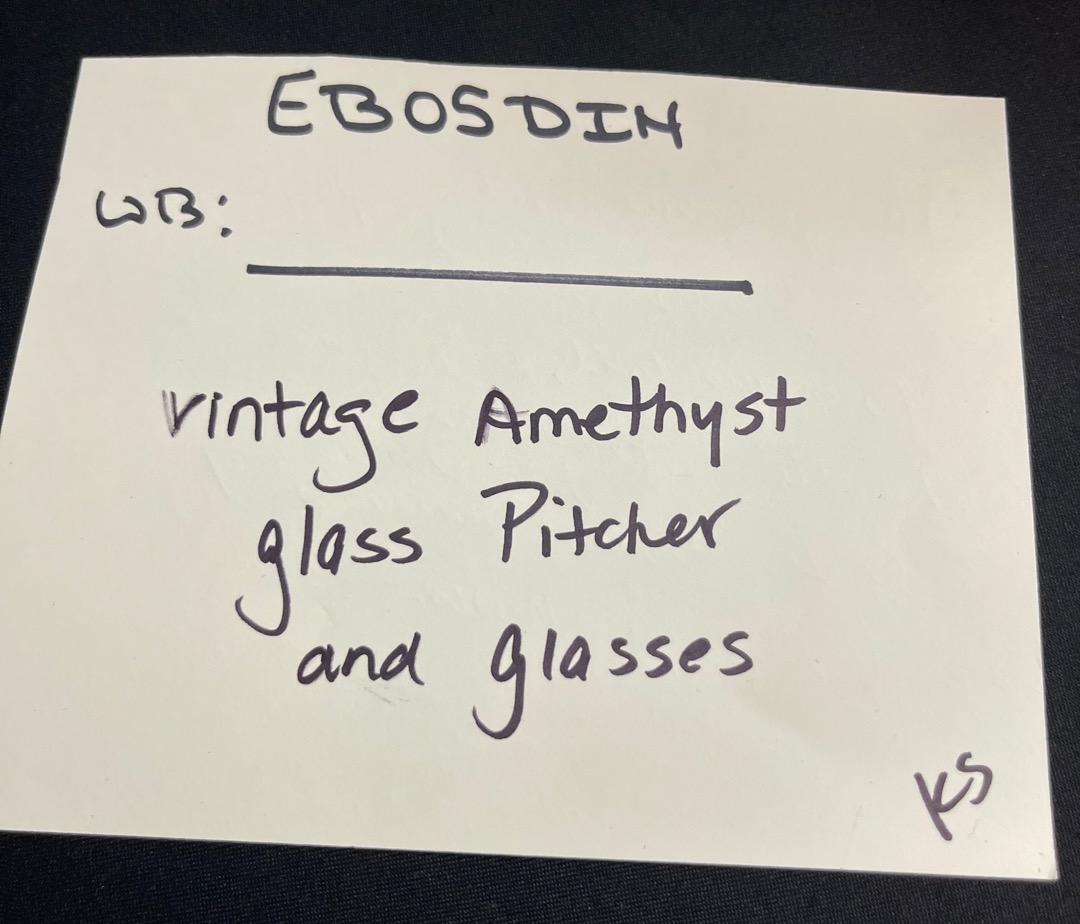 EBOSDIM
WB:
vintage Amethyst
glass Pitcher
and glasses
KS